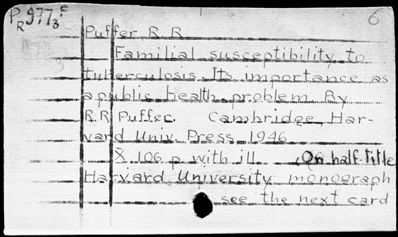 PR977 E/3 6
Puffer, R. R.
Familial susceptibility to
tuberculosis. Its importance as
a public health problem By
R. R. Puffer. Cambridge, Har-
vard Univ. Press, 1946
X, 106 p. with ill. (On half-title
Harvard University monograph
see the next card